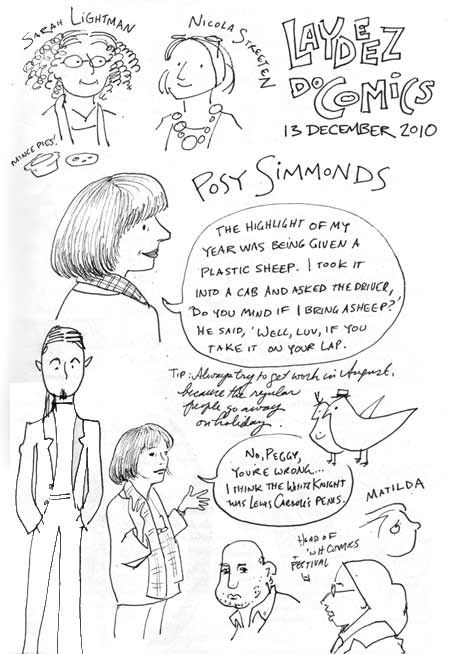 SARAH LIGHTMAN
NICOLA STREETEN
LAYDEEZ
DO COMICS
13 DECEMBER 2010
MINCE PIES!
POSY SIMMONDS
THE HIGHLIGHT OF MY
YEAR WAS BEING GIVEN A
PLASTIC SHEEP. I TOOK IT
INTO A CAB AND ASKED THE DRIVER,
'DO YOU MIND IF I BRING A SHEEP?'
HE SAID, 'WELL, LUV, IF YOU
TAKE IT ON YOUR LAP.
TIP: Always try to get work in August,
because the regular
people go away
on holiday.
NO, PEGGY,
YOU'RE WRONG...
I THINK THE WHITE KNIGHT
WAS LEWIS CARROLL'S PENIS.
MATILDA
HEAD OF
COMICS
FESTIVAL